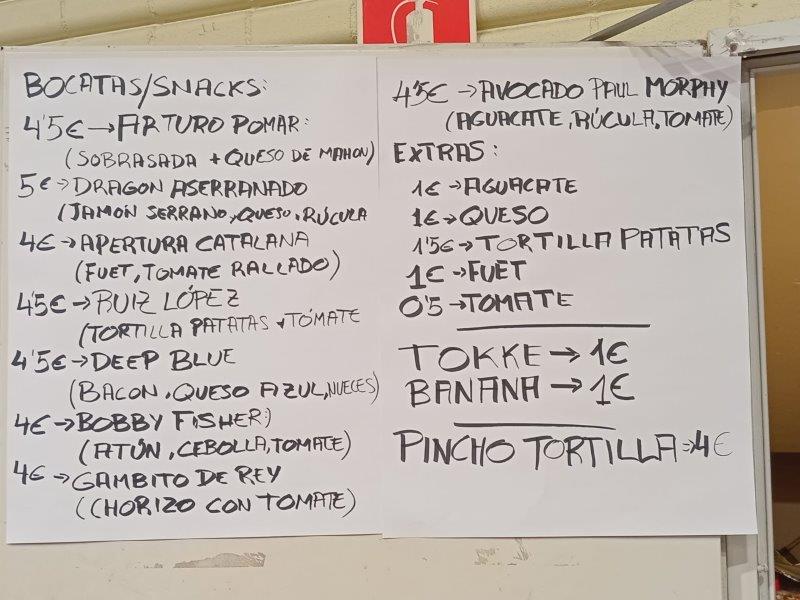 BOCATAS/SNACKS:
4'5€→ARTURO POMAR:
(SOBRASADA + QUESO DE MAHON)
5€→DRAGON ASERRANADO
(JAMÓN SERRANO, QUESO, RÚCULA
4€→APERTURA CATALANA
(FUET, TOMATE RALLADO)
4'5€→RUIZ LÓPEZ
(TORTILLA PATATAS + TOMATE
4'5€→DEEP BLUE
(BACON, QUESO AZUL, NUECES)
4€→BOBBY FISHER:)
(ATÚN, CEBOLLA, TOMATE)
4€→GAMBITO DE REY
(CHORIZO CON TOMATE)
4'5€→AVOCADO PAUL MORPHY
(AGUACATE, RÚCULA, TOMATE)
EXTRAS:
1€→AGUACATE
1€→QUESO
1'5€→TORTILLA PATATAS
1€→FUET
0'5→TOMATE
TOKKE→1€
BANANA→1€
PINCHO TORTILLA⇒4€